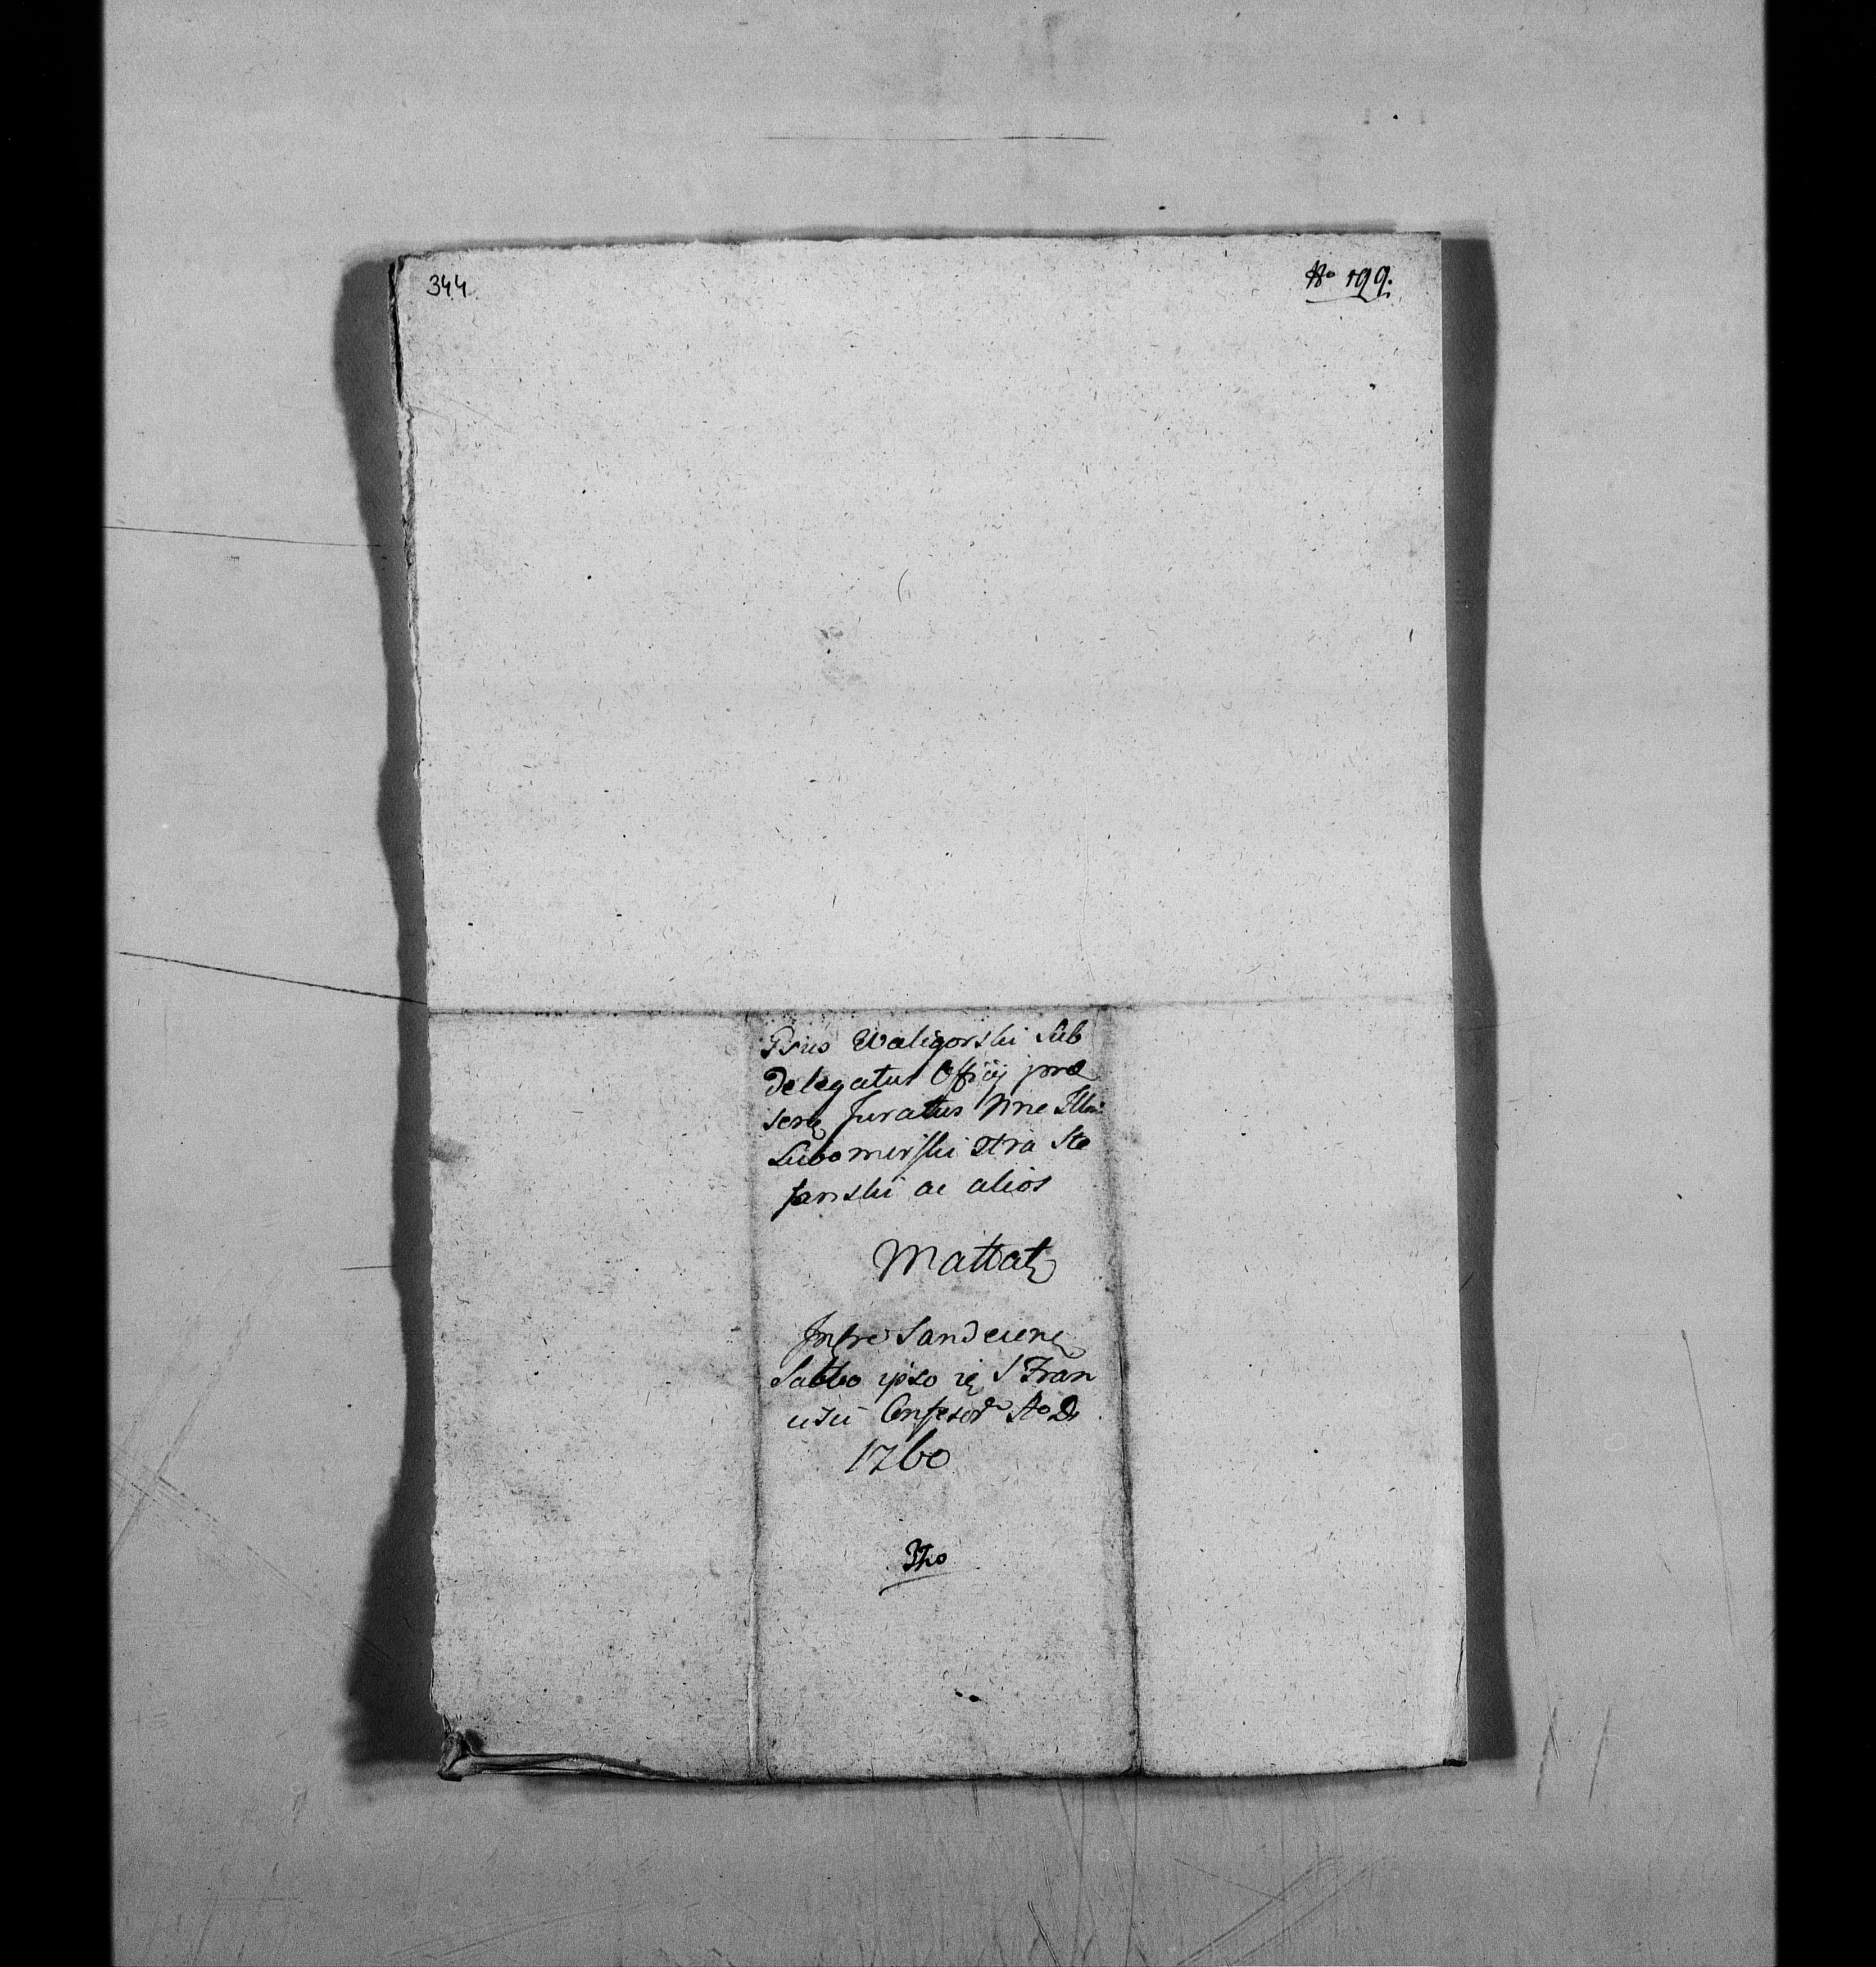 344
No 199.
Gsus Waligorski Sub
delegatus Officij prae
sens Juratus nne Illmi
Lubomirski ctra Ste
fanski ac alios
Mattat
In Cstro Sandecen
Sabbo ipso die S Fran
cisci Confesor Ao D
1760